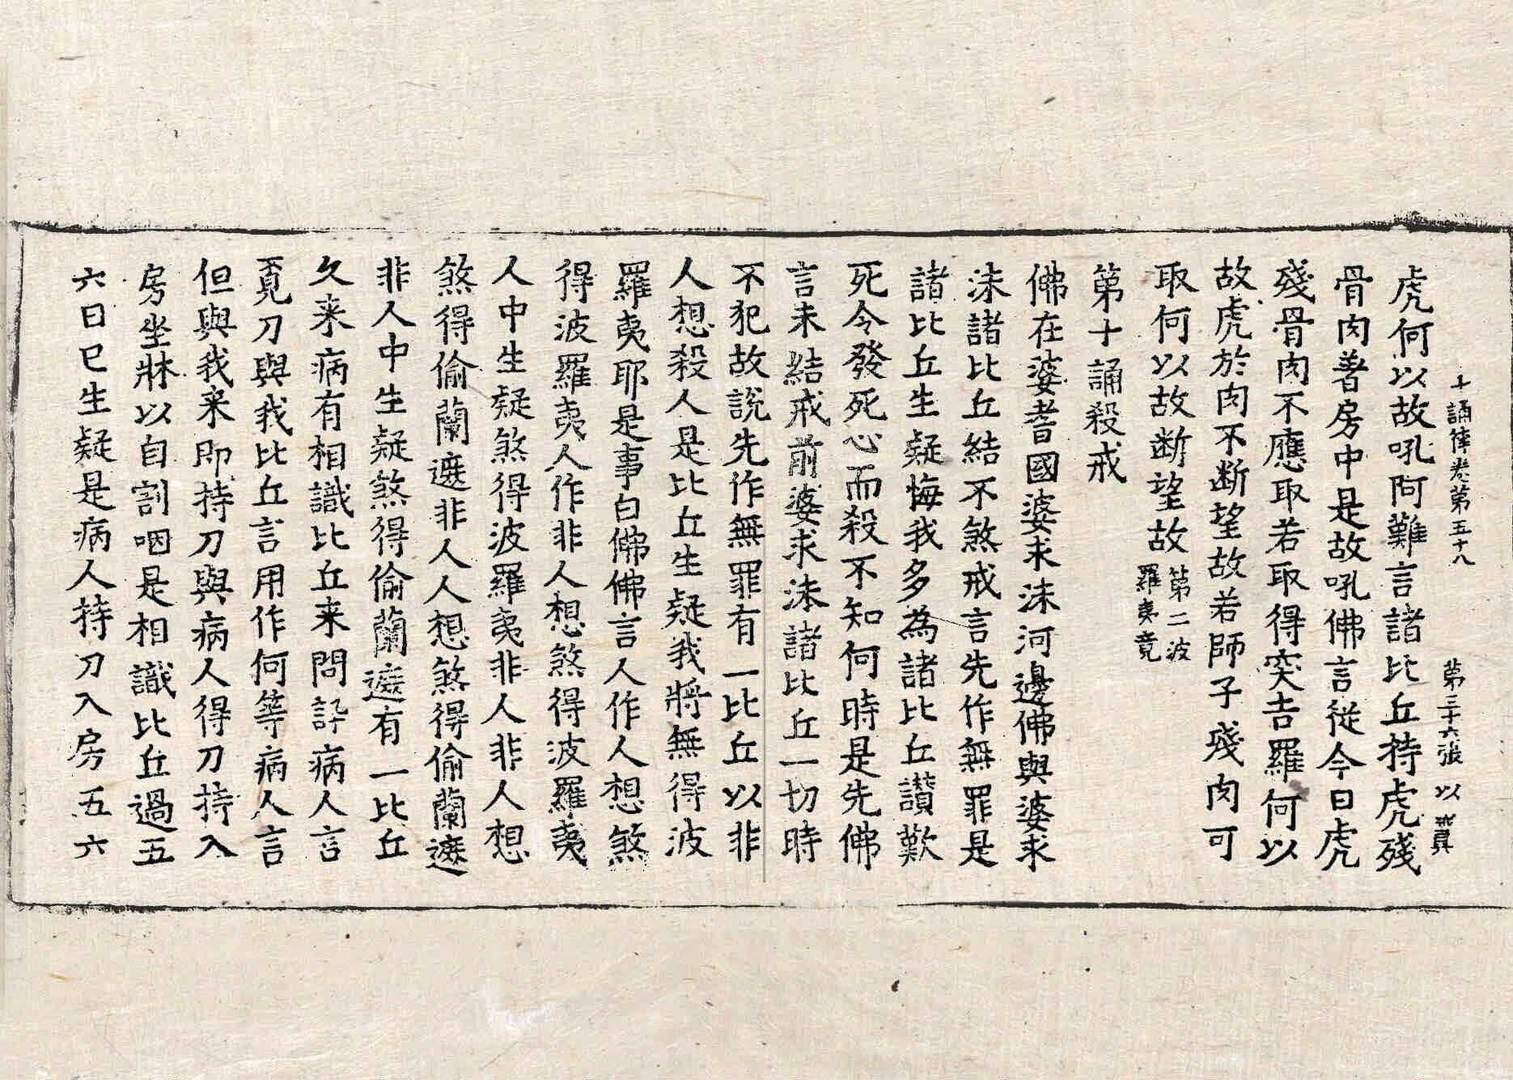 十誦律卷第五十八 第三十六張 以
虎何以故吼阿難言諸比丘持虎殘
骨肉著房中是故吼佛言從今日虎
殘骨肉不應取若取得突吉羅何以
故虎於肉不断望故若師子殘肉可
取何以故断望故 第二波羅夷竟
第十誦殺戒
佛在婆耆國婆求沫河邊佛與婆求
沫諸比丘結不煞戒言先作無罪是
諸比丘生疑悔我多為諸比丘讃歎
死令發死心而殺不知何時是先佛
言未結戒前婆求沫諸比丘一切時
不犯故說先作無罪有一比丘以非
人想殺人是比丘生疑我將無得波
羅夷耶是事白佛佛言人作人想煞
得波羅夷人作非人想煞得波羅夷
人中生疑煞得波羅夷非人非人想
煞得偷蘭遮非人人想煞得偷蘭遮
非人中生疑煞得偷蘭遮有一比丘
久来病有相識比丘来問訊病人言
覓刀與我比丘言用作何等病人言
但與我来即持刀與病人得刀持入
房坐牀以自割咽是相識比丘過五
六日已生疑是病人持刀入房五六